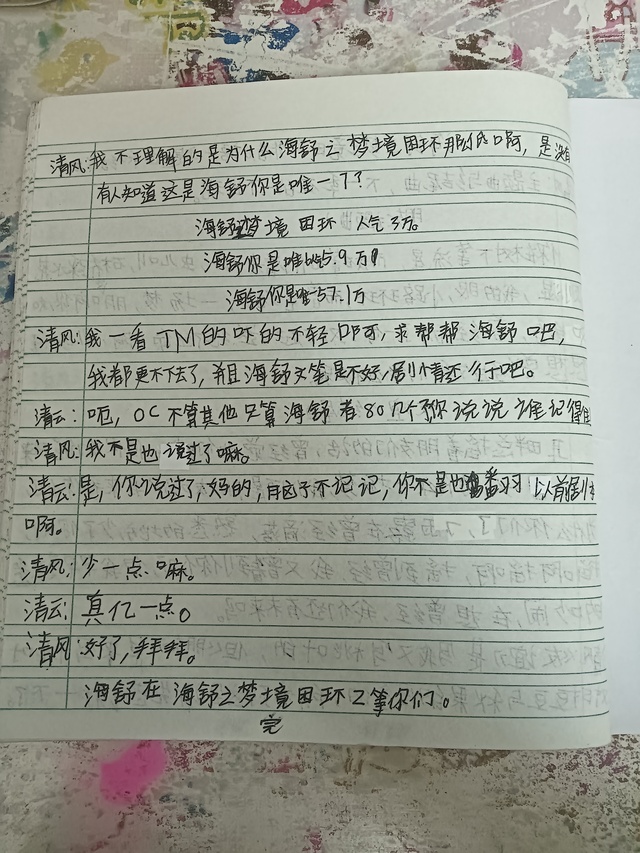 清风:我不理解的是为什么海舒之梦境困环那低啊,是没有
有人知道这是海舒你是唯一了?
海舒梦境困环 人气3万。
海舒你是唯 5.9万
海舒你是唯 57.1万
清风:我一看TM的吓的不轻啊,求帮帮海舒吧,
我都更不去了,并且海舒文笔是不好,剧情还行吧。
清云:呃,OC不算其他只算海舒者80几个你说说谁记得住
清风:我不是也说过了嘛。
清云:是,你说过了,妈的,用脑子不记记,你不是也翻以前剧本
啊。
清风:少一点嘛。
清云:真亿一点。
清风:好了,拜拜。
海舒在海舒之梦境困环2等你们。
完